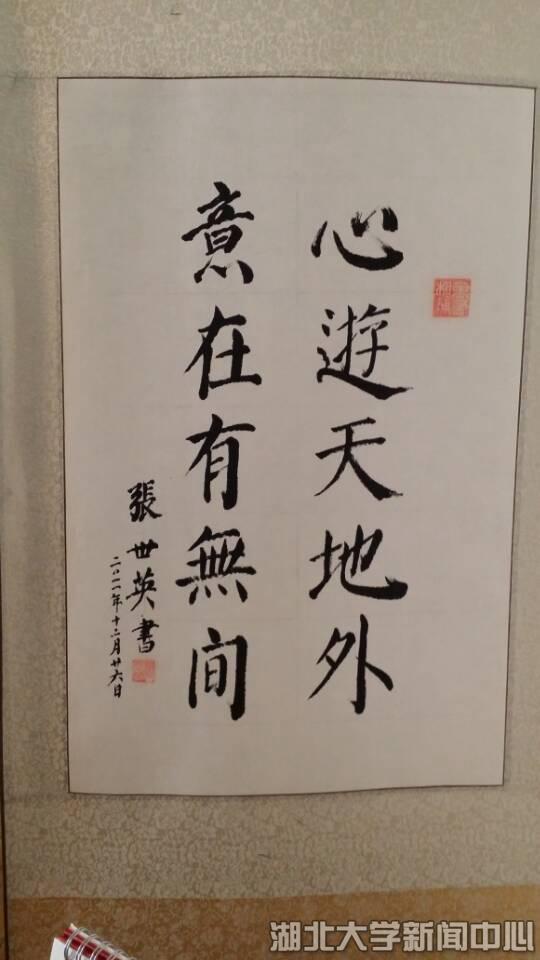 心遊天地外
意在有無间
張世英書
二〇一一年十二月廿六日
湖北大学新闻中心